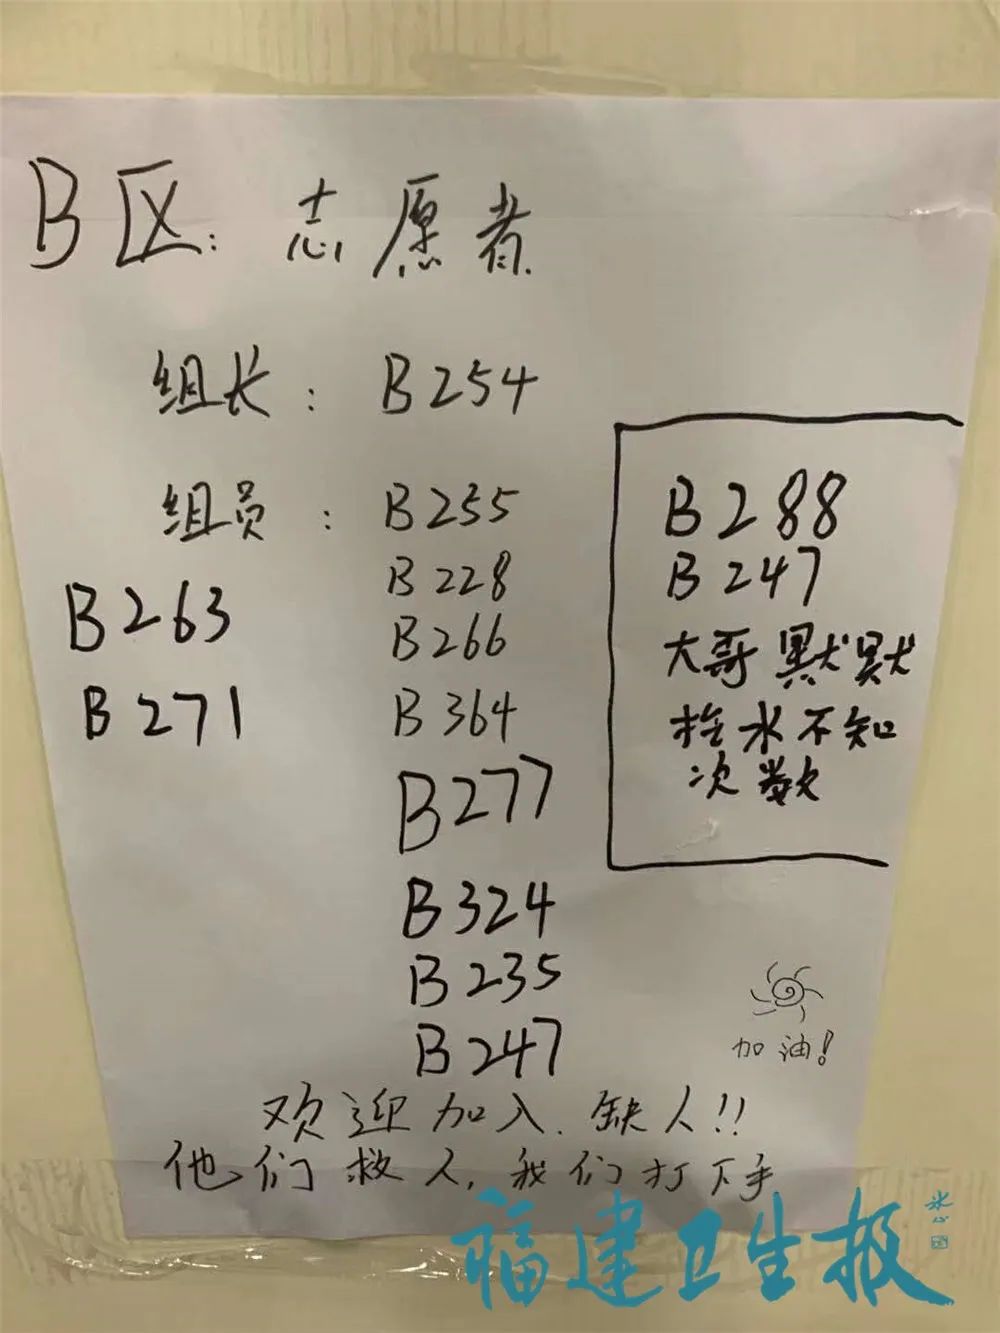 B区:志愿者
组长: B254
组员: B255
B263
B271
B228
B266
B364
B277
B324
B235
B247
B288
B247
大哥默默
拎水不知
次数
加油!
欢迎加入.缺人!!
他们救人,我们打下手
福建卫生报